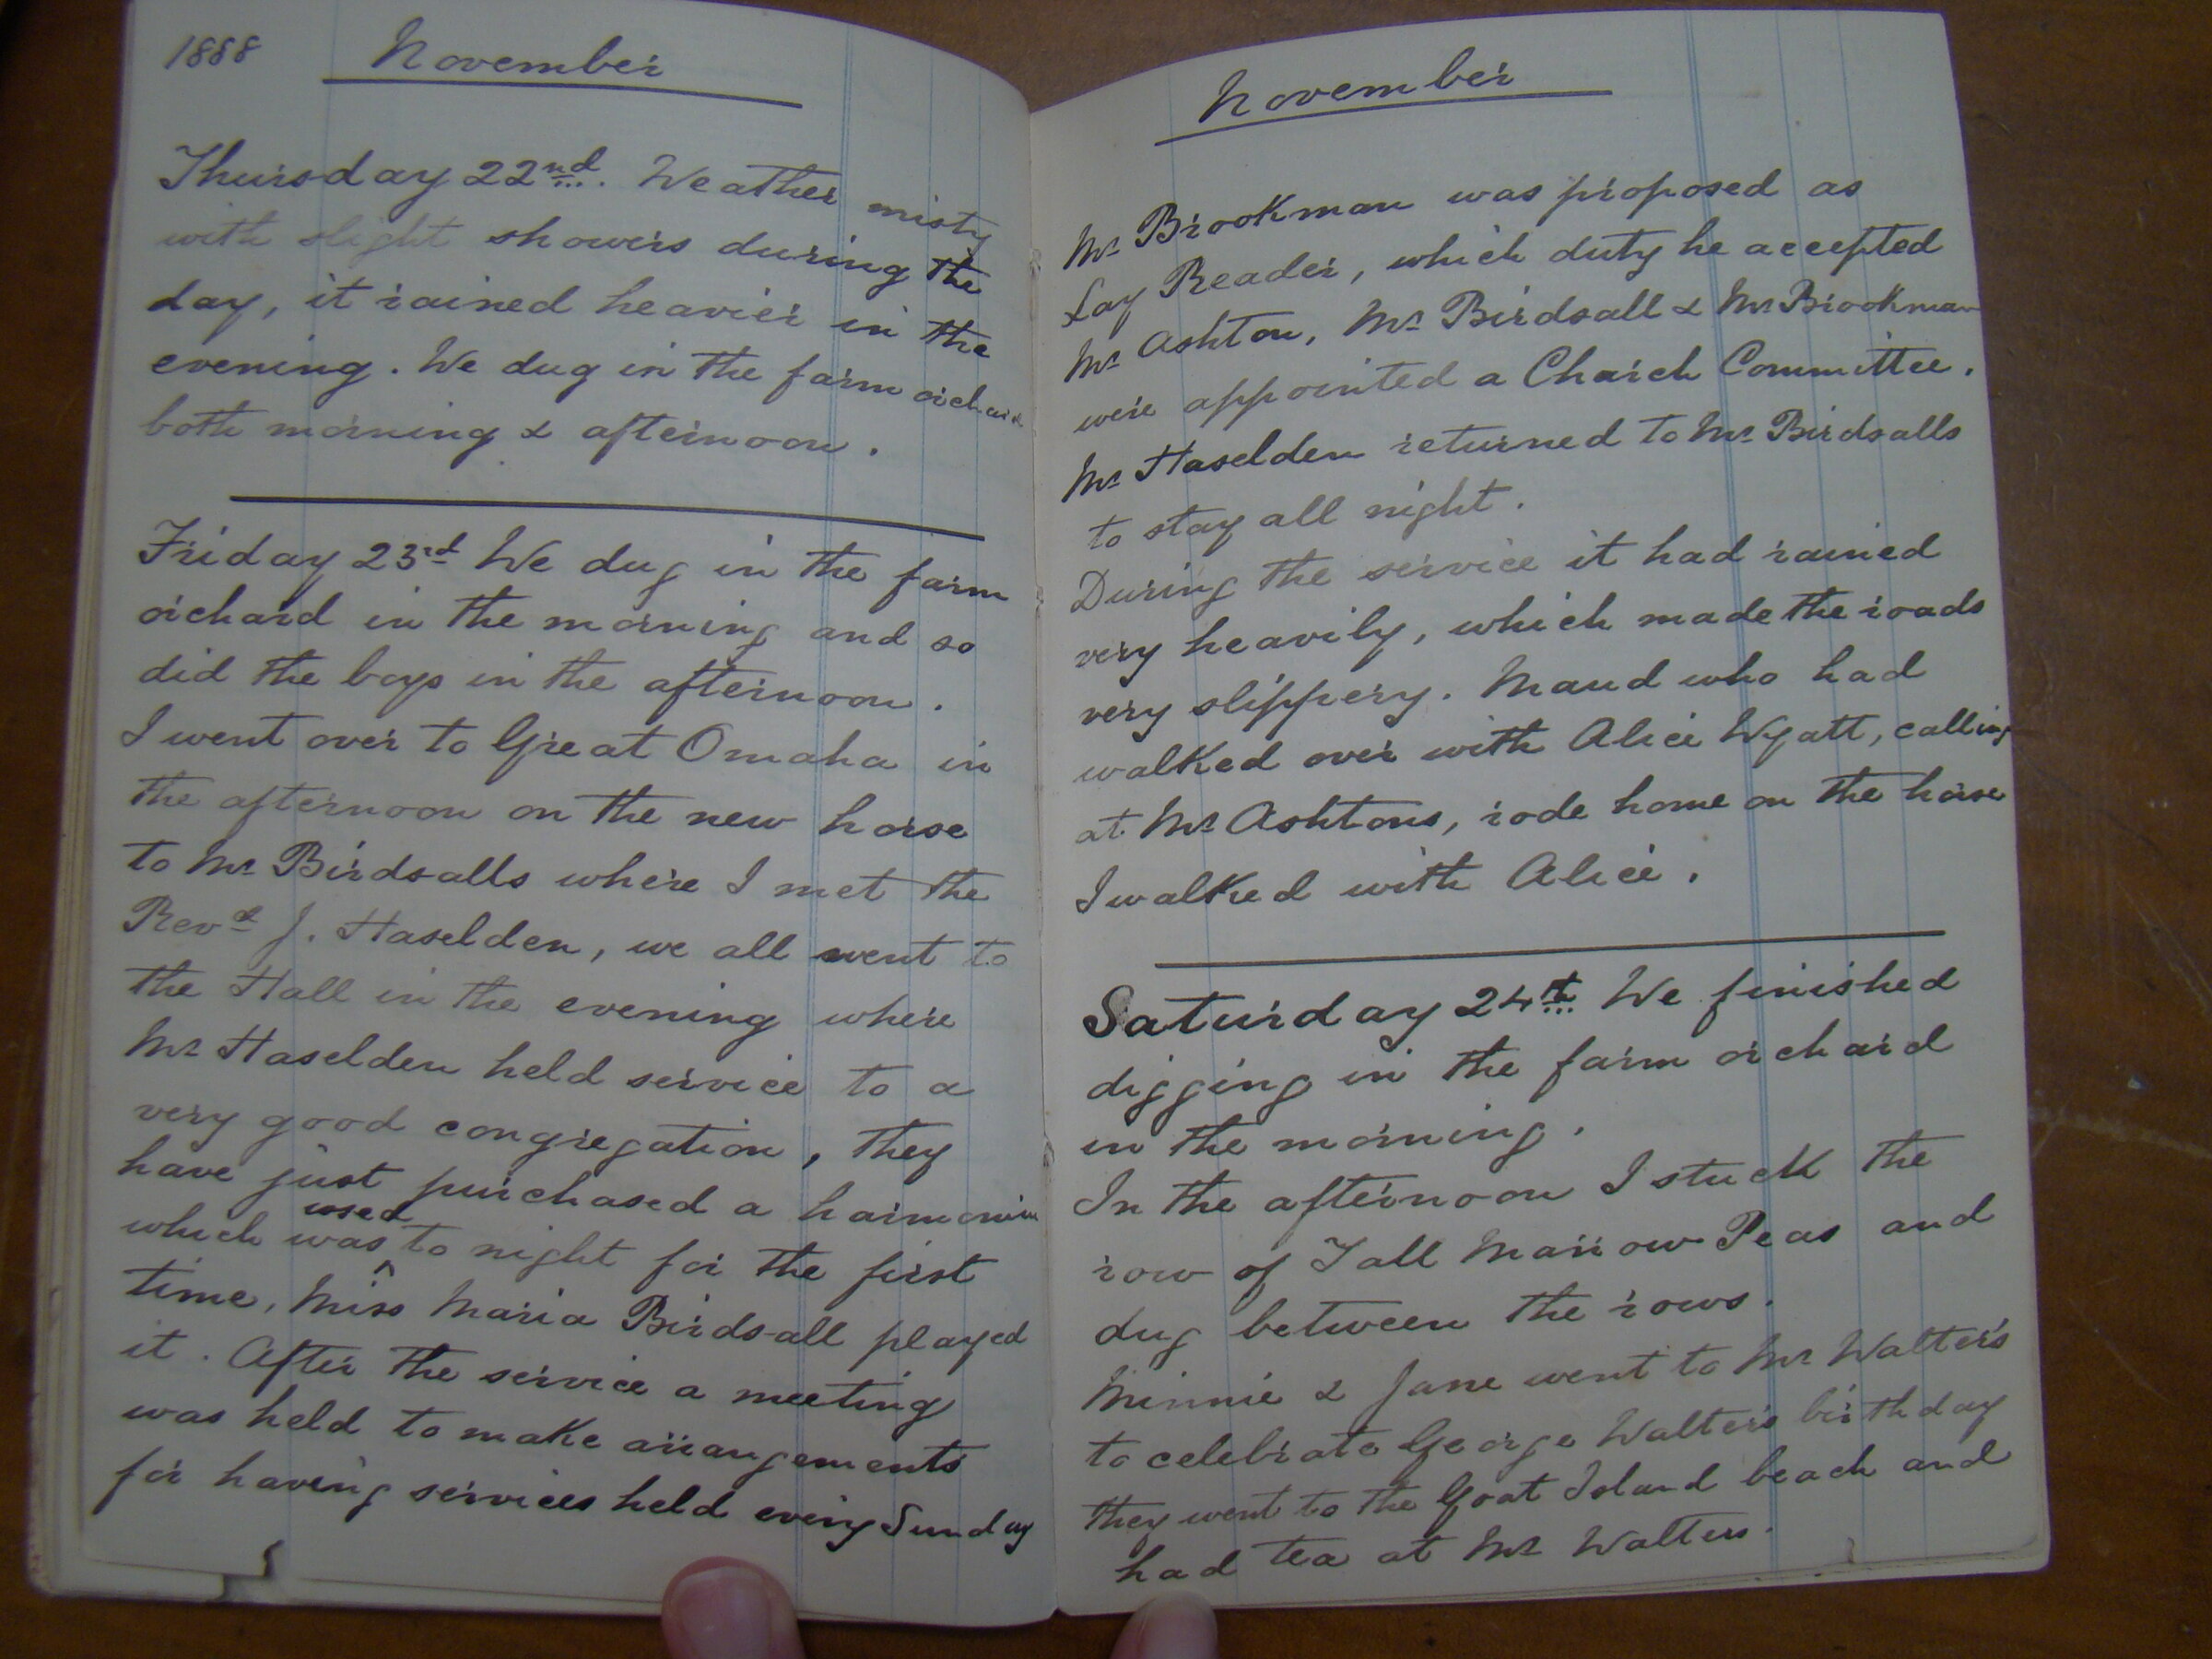 1888 November
Thursday 22nd. Weather misty
with slight showers during the
day, it rained heavier in the
evening. We dug in the farm orchard
both morning & afternoon.
Friday 23rd We dug in the farm
orchard in the morning and so
did the boys in the afternoon.
I went over to Great Omaha in
the afternoon on the new horse
to Mr Birdsalls where I met the
Revd J. Haselden, we all went to
the Hall in the evening where
Mr Haselden held service to a
very good congregation, they
have just purchased a harmonium
which was used to night for the first
time, Miss Maria Birdsall played
it. After the service a meeting
was held to make arrangements
for having services held every Sunday
November
Mr Brookman was proposed as
Lay Reader, which duty he accepted
Mr Ashton, Mr Birdsall & Mr Brookman
were appointed a Church Committee.
Mr Haselden returned to Mr Birdsalls
to stay all night.
During the service it had rained
very heavily, which made the roads
very slippery. Maud who had
walked over with Alice Wyatt, calling
at Mr Ashtons, rode home on the horse
I walked with Alice.
Saturday 24th We finished
digging in the farm orchard
in the morning.
In the afternoon I stuck the
row of Tall Marrow Peas and
dug between the rows.
Minnie & Jane went to Mr Walter's
to celebrate George Walter's birthday
they went to the Goat Island beach and
had tea at Mr Walters.